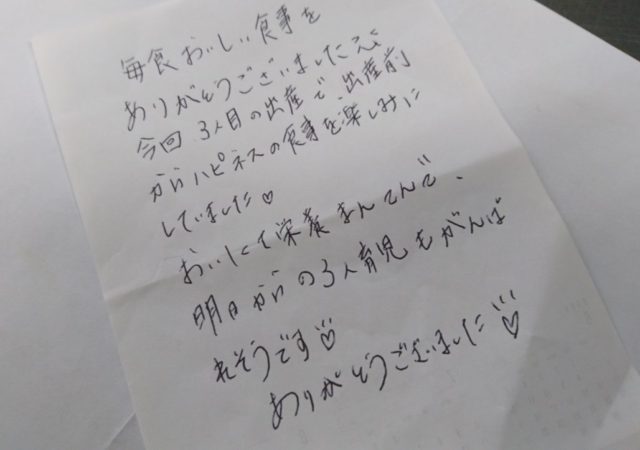 毎食おいしい食事を
ありがとうございました
今回 3人目の出産で、出産前
からハピネスの食事を楽しみに
していました♡
おいしくて栄養まんてんで、
明日からの3人育児もがんば
れそうです♡
ありがとうございました♡